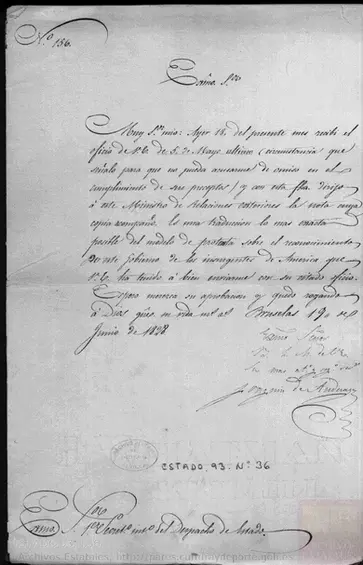 N.º 136.
Exmo. S.or
Muy S.or mio: Ayer 18, del presente mes recibi el
oficio de V.E. de 5. de Mayo ultimo (circunstancia que
señalo para que no pueda acusarme de omiso en el
cumplimiento de sus preceptos) y con esta fha. dirijo
á este Ministro de Relaciones exteriores la nota cuya
copia acompaño. Es una traduccion lo mas exacta
posible del modelo de protesta sobre el reconocimiento
por este gobierno de los insurgentes de America que
V.E. ha tenido á bien enviarme con su citado oficio.
Espero merezca su aprobacion y quedo rogando
á Dios gûe. su vida m.s a.s Bruselas 19 de
Junio de 1828.
Exmo. Señor
B. L. M. de V.E.
Su mas at.o seg.o serv.
Joaquin de
ESTADO, 93, N.º 36
Exmo. S.or Secret.o del Despacho de Estado.
Archivos Estatales, http://pares.